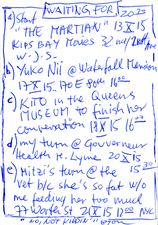 WAITING FOR
a) start 20:25
"THE MARTIAN" 13 X 15
KIPS BAY Movies 32 w/ 2nd Ave
w - J. S.
b) Yuko Nii @ Waterfall Mansion
17 X 15 170 E 80th 16 00
c) KiTO in the Queens
MUSEUM to finish her
conversation 18 X 15 16
d) my turn @ Gouverneur
Health M. Lyme 20 X 15
e) Mitzi's turn @ the 15 30
Vet b/c she's so fat w/o
me feeding her too much
77 Worth St 21 X 15 12 00 NYC
"NO, NOT KIDDIN'"